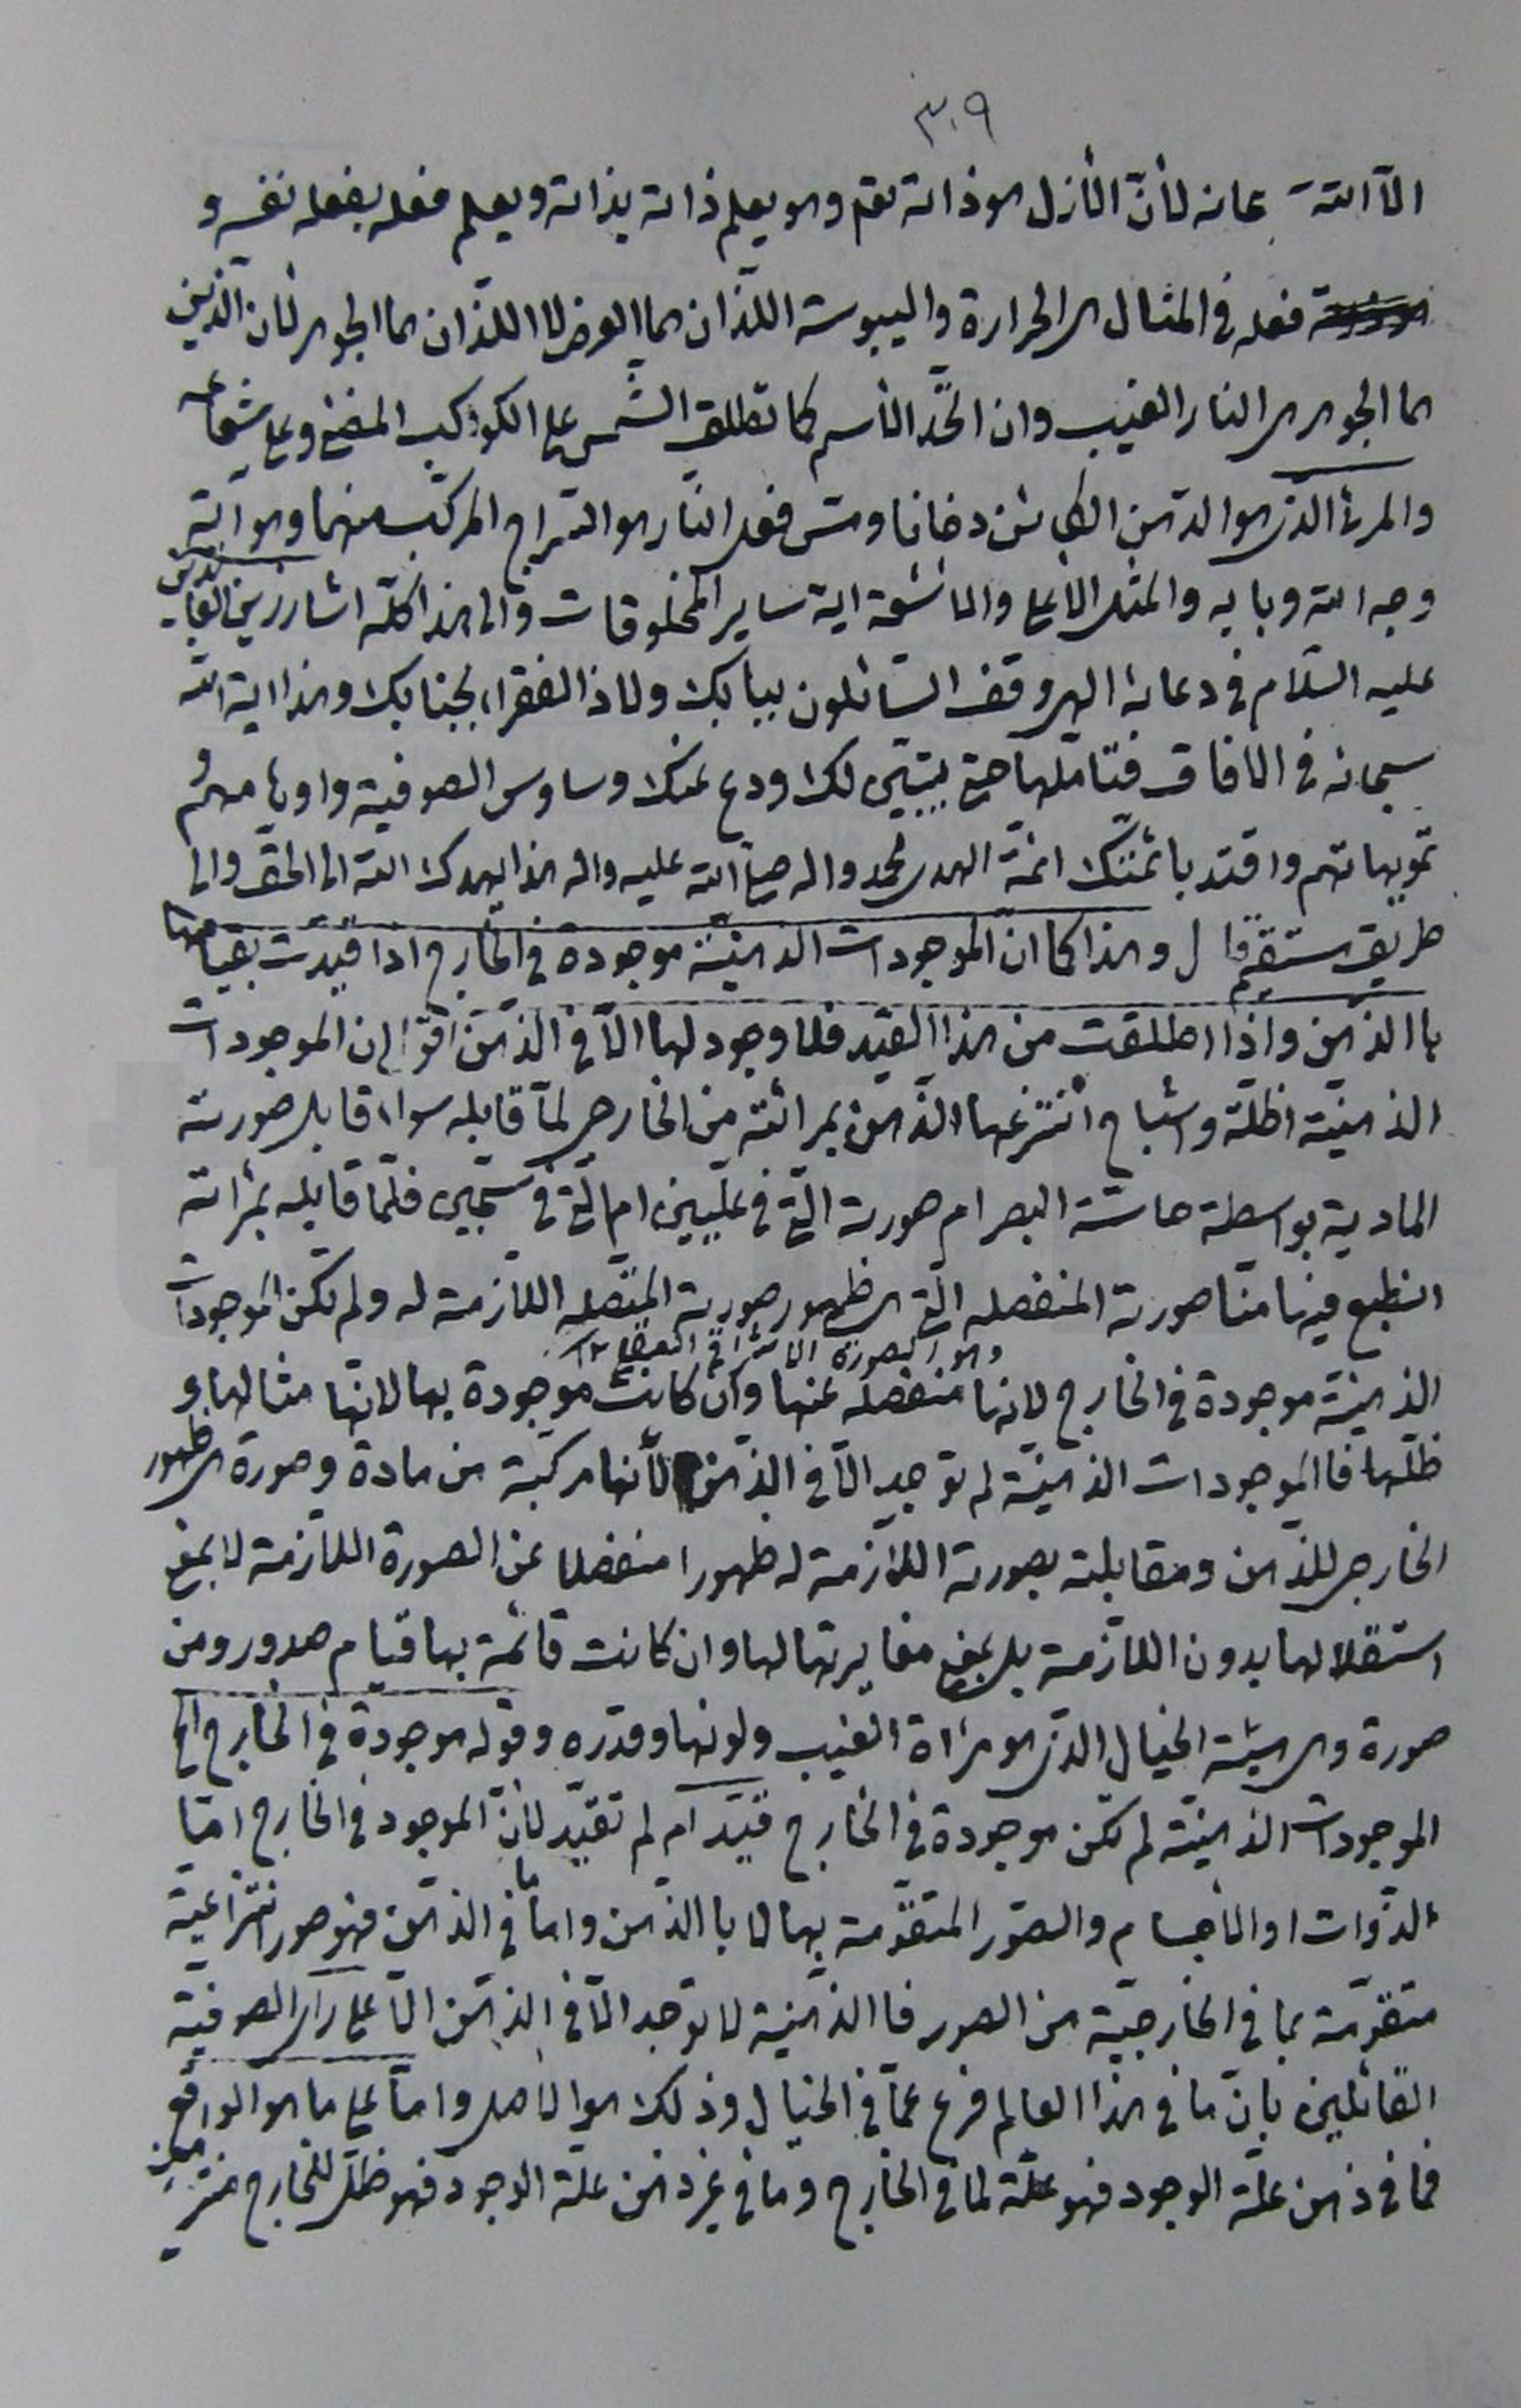 ٣٠٩
الا الله سبحانه لأنّ الأزل هو ذاته تعم وهو يعلم ذاته بذاته ويعلم فعله بفعله نفسه و
فعله في المثال هي الحرارة واليبوسة اللّذان هما العرض لا اللذان هما الجوهر لأن الذين
هما الجوهر هي النار الغيب وان اتحد الأسم كما تطلق الشمس على الكوكب المضئ وعلى شعاعه
والمرئ الذي هو الدهن الكائن دخانا ومس فعل النار هو السراج المركب منهما وهو آية
وجه الله وبابه والمثل الاعلى والاشعة اية ساير المخلوقات والى هذا كلّه اشار زين العابدين
عليه السّلام في دعائه الهي وقف السّائلون ببابك ولاذ الفقراء بجنابك وهذا اية الله
سبحانه في الافاق فتأملها حتى يتبيّن لك ودع عنك وساوس الصوفية واوهامهم و
تمويهاتهم واقتد بائمتك ائمة الهدى محمد واله صلى الله عليه واله هذا يهدك الله الى الحق والى
طريق مستقيم قال وهذا كما انّ الموجودات الذهنيّة موجودة في الخارج اذا قيّدت بقيامها
با الذهن واذا اطلقت من هذا القيد فلا وجود لها الّا في الذهن اقول ان الموجودات
الذهنيّة اظلّة واشباح انتزعها الذهن بمرآته من الخارجي لمّا قابله سواء قابل صورته
المادية بواسطة حاسّة البصر ام صورته الّتي في عليّين ام الّتي في سجّين فلمّا قابله بمرآته
انطبع فيها منّا صورته المنفصله الّتي هي ظهور صورته المتّصله اللازمة له ولم تكن الموجودات
وهو الصورة الاشراق
الذهنيّة موجودة في الخارج لانها منفصلة عنها وان كانت موجودة بها لانها مثالها و
ظلّها فا الموجودات الذهنيّة لم توجد الّا في الذّهن لأنها مركبة من مادة وصورة هي ظهور
الخارجي للذّهن ومقابلته بصورته اللازمة له ظهورا منفصلا عن الصورة اللازمة لا بمعنى
استقلالها بدون اللازمة بل بمعنى مغايرتها لها وان كانت قائمة بها قيام صدور ومن
صورة وهي هيئة الخيال الذي هو مرآة الغيب ولونها وقدره وقوله موجودة في الخارج الخ
الموجودات الذهنيّة لم تكن موجودة في الخارج قيّد ام لم تقيّد لأنّ الموجود في الخارج امّا
الذّوات او الأجسام والصّور المتقوّمة بها لا با الذّهن واما ما في الذّهن فهو صور انتزاعيّة
متقوّمة بما في الخارجيّة من الصور فا الذّهنية لا توجد الّا في الذّهن الّا على رأي الصوفيّة
القائلين بانّ ما في هذا العالم فرع عمّا في الخيال وذلك هو الاصل وامّا على ما هو الواقع
فما في ذهن علّة الوجود فهو علّة لما في الخارج وما في غير ذهن علّة الوجود فهو ظلّ للخارج منتزع